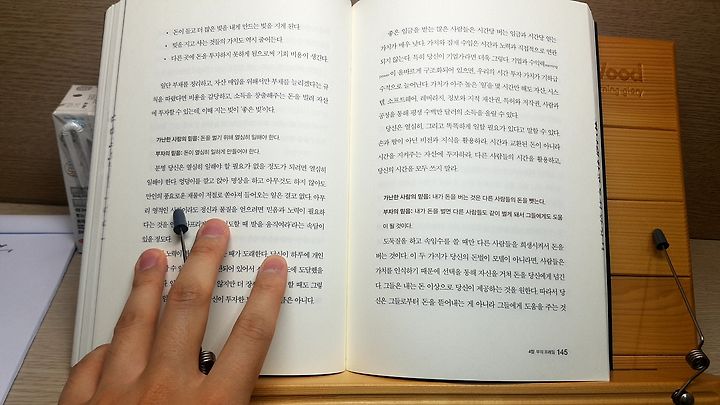 • 돈이 들고 더 많은 빚을 내게 만드는 빚을 지게 된다.
• 빚을 지고 사는 것들의 가치도 역시 줄어든다.
• 다른 곳에 돈을 투자하지 못하게 됨으로써 기회 비용이 생긴다.
일단 부채를 정리하고, 자산 매입을 위해서만 부채를 늘리겠다는 규
칙을 따랐다면 비용을 감당하고, 소득을 창출해주는 돈을 빌려 자산
에 투자할 수 있는데, 이때 지는 빚이 '좋은 빚'이다.
가난한 사람의 믿음: 돈을 벌기 위해 열심히 일해야 한다.
부자의 믿음: 돈이 열심히 일하게 만들어야 한다.
분명 당신은 열심히 일해야 할 필요가 없을 정도가 되려면 열심히
일해야 한다. 엉덩이를 깔고 앉아 명상을 하고 아무것도 하지 않아도
만인의 풍요로운 재물이 저절로 쏟아져 들어오는 일은 결코 없다. 아무
리 영적인 이라도 정신과 물질을 얻으려면 믿음과 노력이 필요하
다는 것을 도할 때 발을 움직여라'라는 속담이
있을 정도다.
노력이 때가 도래한다. 당신이 하루에 개인
되어 있어서 도에 도달했을
않지만 더 할 때도 그럴
신이 투자한 금은 아니다.
'좋은 임금'을 받는 많은 사람들은 시간당 버는 임금과 시간당 얻는
가치가 매우 낮다. 가치와 잠재 수입은 시간과 노력과 직접적으로 연관
되지 않는다. 특히 당신이 기업가라면 더욱 그렇다. 기업과 수익력earning
power이 올바르게 구조화되어 있으면, 우리의 시간 투자 가치가 기하급
수적으로 늘어난다. 가치가 아주 높은 '일'을 몇 시간만 해도 자산, 시스
템, 소프트웨어, 레버리지, 정보와 지적 재산권, 특허와 저작권, 사람과
공정을 통해 평생 수백만 달러의 소득을 올릴 수 있다.
당신은 열심히, 그리고 똑똑하게 일할 필요가 있다고 말할 수 있다.
돈과 땀이 아닌 비전과 지식을 활용하라. 시간과 교환된 돈이 아니라
시간을 지켜주는 자산에 투자하라. 다른 사람들의 시간을 활용하고,
당신의 시간을 모두 쓰지 말라.
가난한 사람의 믿음: 내가 돈을 버는 것은 다른 사람들의 돈을 뺏는다.
부자의 믿음: 내가 돈을 벌면 다른 사람들도 같이 벌게 돼서 그들에게도 도움
이 될 것이다.
도둑질을 하고 속임수를 쓸 때만 다른 사람들을 희생시켜서 돈을
버는 것이다. 이 두 가지가 당신의 돈벌이 모델이 아니라면, 사람들은
가치를 인식하기 때문에 선택을 통해 자신을 거쳐 돈을 당신에게 넘긴
다. 그들은 내는 돈 이상으로 당신이 제공하는 것을 원한다. 따라서 당
신은 그들로부터 돈을 뜯어내는 게 아니라 그들에게 도움을 주는 것
4장 부의 프레임 145
Wood